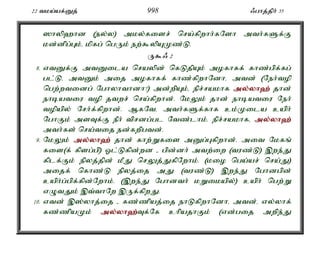 22 வமய்யக்னுத் 998 ஃபாத்திர் 35
ஸாலிஹான (நல்ல) அமல்களைச் செய்கிறார்களோ அவர்களுக்கு
மன்னிப்பும், மிகப் பெரும் நற்கூலியுமுண்டு.
ருகூஃ 2
8. எவனுக்கு அவனுடைய செயலின் கெடுதியும் அழகாகக் காண்பிக்கப்
பட்டு, அவனும் அதை அழகாகக் காண்கிறானோ, அவன் (நேர்வழி
பெற்றவனைப் போலாவானா?) அன்றியும், நிச்சயமாக அல்லாஹ் தான்
நாடியவரை வழி தவறச் செய்கிறான். மேலும் தான் நாடியவரை நேர்
வழியில் சேர்க்கிறான். ஆகவே, அவர்களுக்காக உம்முடைய உயிர்
போகும் அளவுக்கு நீர் விசனப்பட வேண்டாம். நிச்சயமாக, அல்லாஹ்
அவர்கள் செய்வதை நன்கறிபவன்.
9. மேலும் அல்லாஹ் தான் காற்றுகளை அனுப்புகிறான். அவை மேகங்
களை(க் கிளப்பி) ஓட்டுகின்றன - பின்னர் அவற்றை (வரண்டு) இறந்து
கிடக்கும் நிலத்தின் மீது செலுத்துகிறோம். (மழை பெய்யச் செய்து)
அதைக் கொண்டு நிலத்தை அது (வரண்டு) இறந்து போனபின்
உயிர்ப்பிக்கின்றோம். (இறந்து போனவர் மறுமையில்) உயிர் பெற்று
எழுவதும் இவ்வாறே இருக்கிறது.
10. எவன் இஸ்லாத்தை - கண்ணியத்தை நாடுகிறானோ, அவன், எல்லாக்
கண்ணியமும் அல்லாஹ்வுக்கே உரியதாகும் (என்பதை அறிந்து